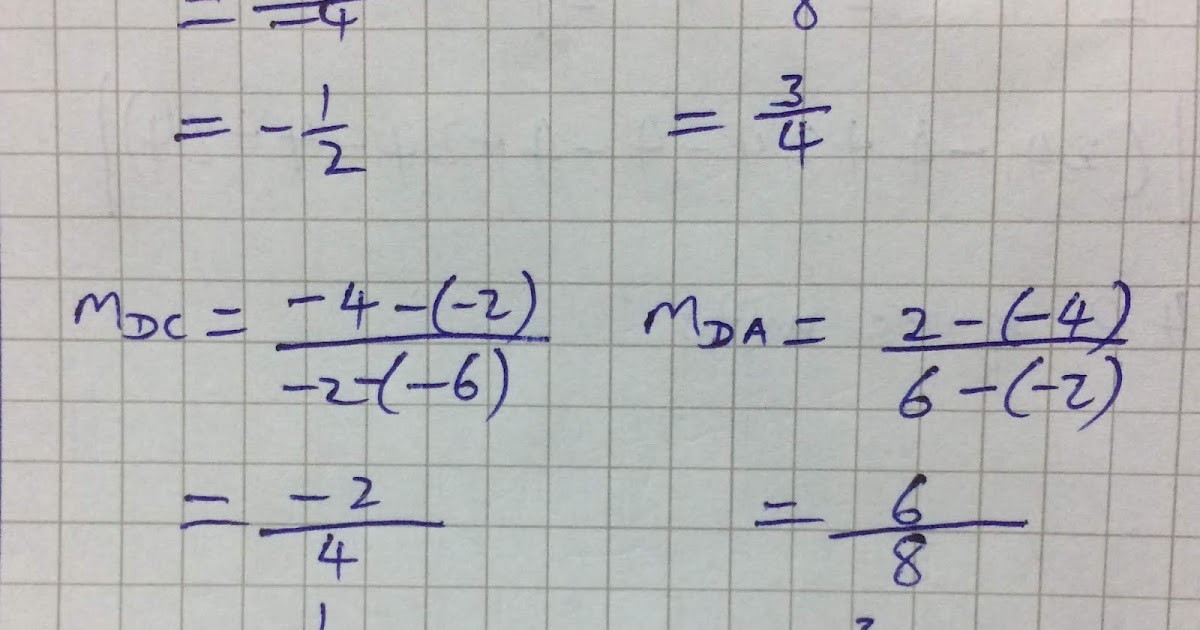 = —/-4   8
= -1/2   = 3/4
m_DC = (-4-(-2))/(-2-(-6))   m_DA = (2-(-4))/(6-(-2))
= -2/4   = 6/8
1